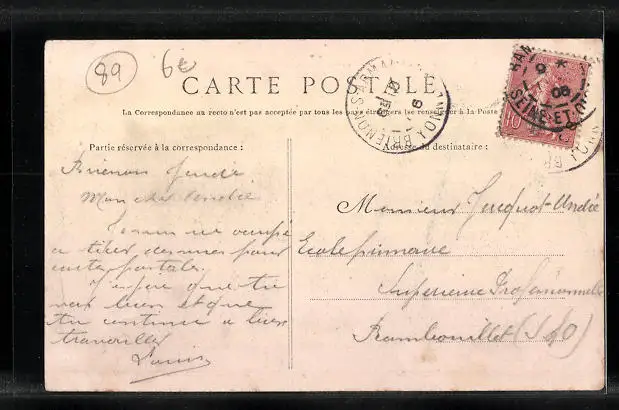 89
6€
CARTE POSTALE
La Correspondance au recto n'est pas acceptée par tous les pays étrangers (se renseigner à la Poste
Partie réservée à la correspondance :
Adresse du destinataire :
BRIENON-S-ARMANÇON YONNE
SEINE-ET-O
10
Brienon Jeudi
Mon cher André
occupé
a tirer des vues pour
cartes postales.
J'espère que tu
vas bien et que
tu continue a bien
travailler
Louis
Monsieur Jacquot-André
Ecole primaire
Supérieure Professionnelle
Rambouillet (S&O)